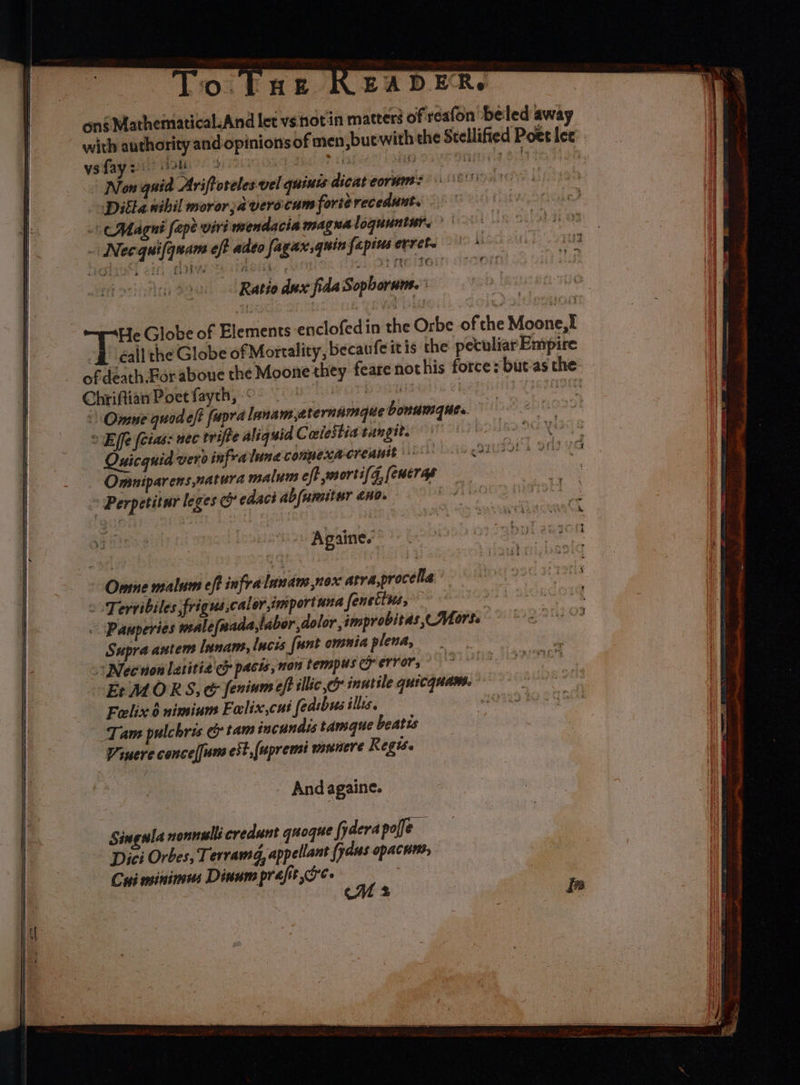 To THE READER.
ons Mathematical. And let vs not in matters of reaſon be led away
with authority and opinions of men, but with the Stellified Poet let
vs ſay :
Non quid Ariſtoteles vel quiuis dicat eorum:
Dicta nihil moror, à vero cum fortè recedunt.
Magni ſæpè viri mendacia magna loquuntur.
Nec quiſquam eſt adeo ſagax, quin ſæpius erret.
Ratio dux fida Sophorum.
THe Globe of Elements encloſed in the Orbe of the Moone, I
call the Globe of Mortality, becauſe it is the peculiar Empire
of death. For aboue the Moone they feare not his force : but as the
Chriſtian Poet ſayth,
Omne quod eſt ſupra lunam, æternúmque bonumque.
Eſſe ſcias: nec triſte aliquid Cœleſtia tangit.
Quicquid vero infra lunæ connexa creauit
Omniparens, natura malum eſt, mortiſq́, ſeueras
Perpetitur leges & edaci abſumitur æuo.
Againe.
Omne malum eſt infra lunam, nox atra, procella
Terribiles, frigus, calor, importuna ſenectus,
Pauperies maleſuada, labor, dolor, improbitas, Mors.
Supra autem lunam, lucis ſunt omnia plena,
Nec non lætitiæ & pacis, non tempus & error,
Et MORS, & ſenium eſt illic, & inutile quicquam.
Fœlix ô nimium Fœlix, cui ſedibus illis.
Tam pulchris & tam iucundis tamque beatis
Viuere conceſſum eſt, ſupremi munere Regis.
And againe.
Singula nonnulli credunt quoque ſydera poſſe
Dici Orbes, Terramq́, appellant ſydus opacum,
Cui minimus Diuum præſit, &c.
M 2
In